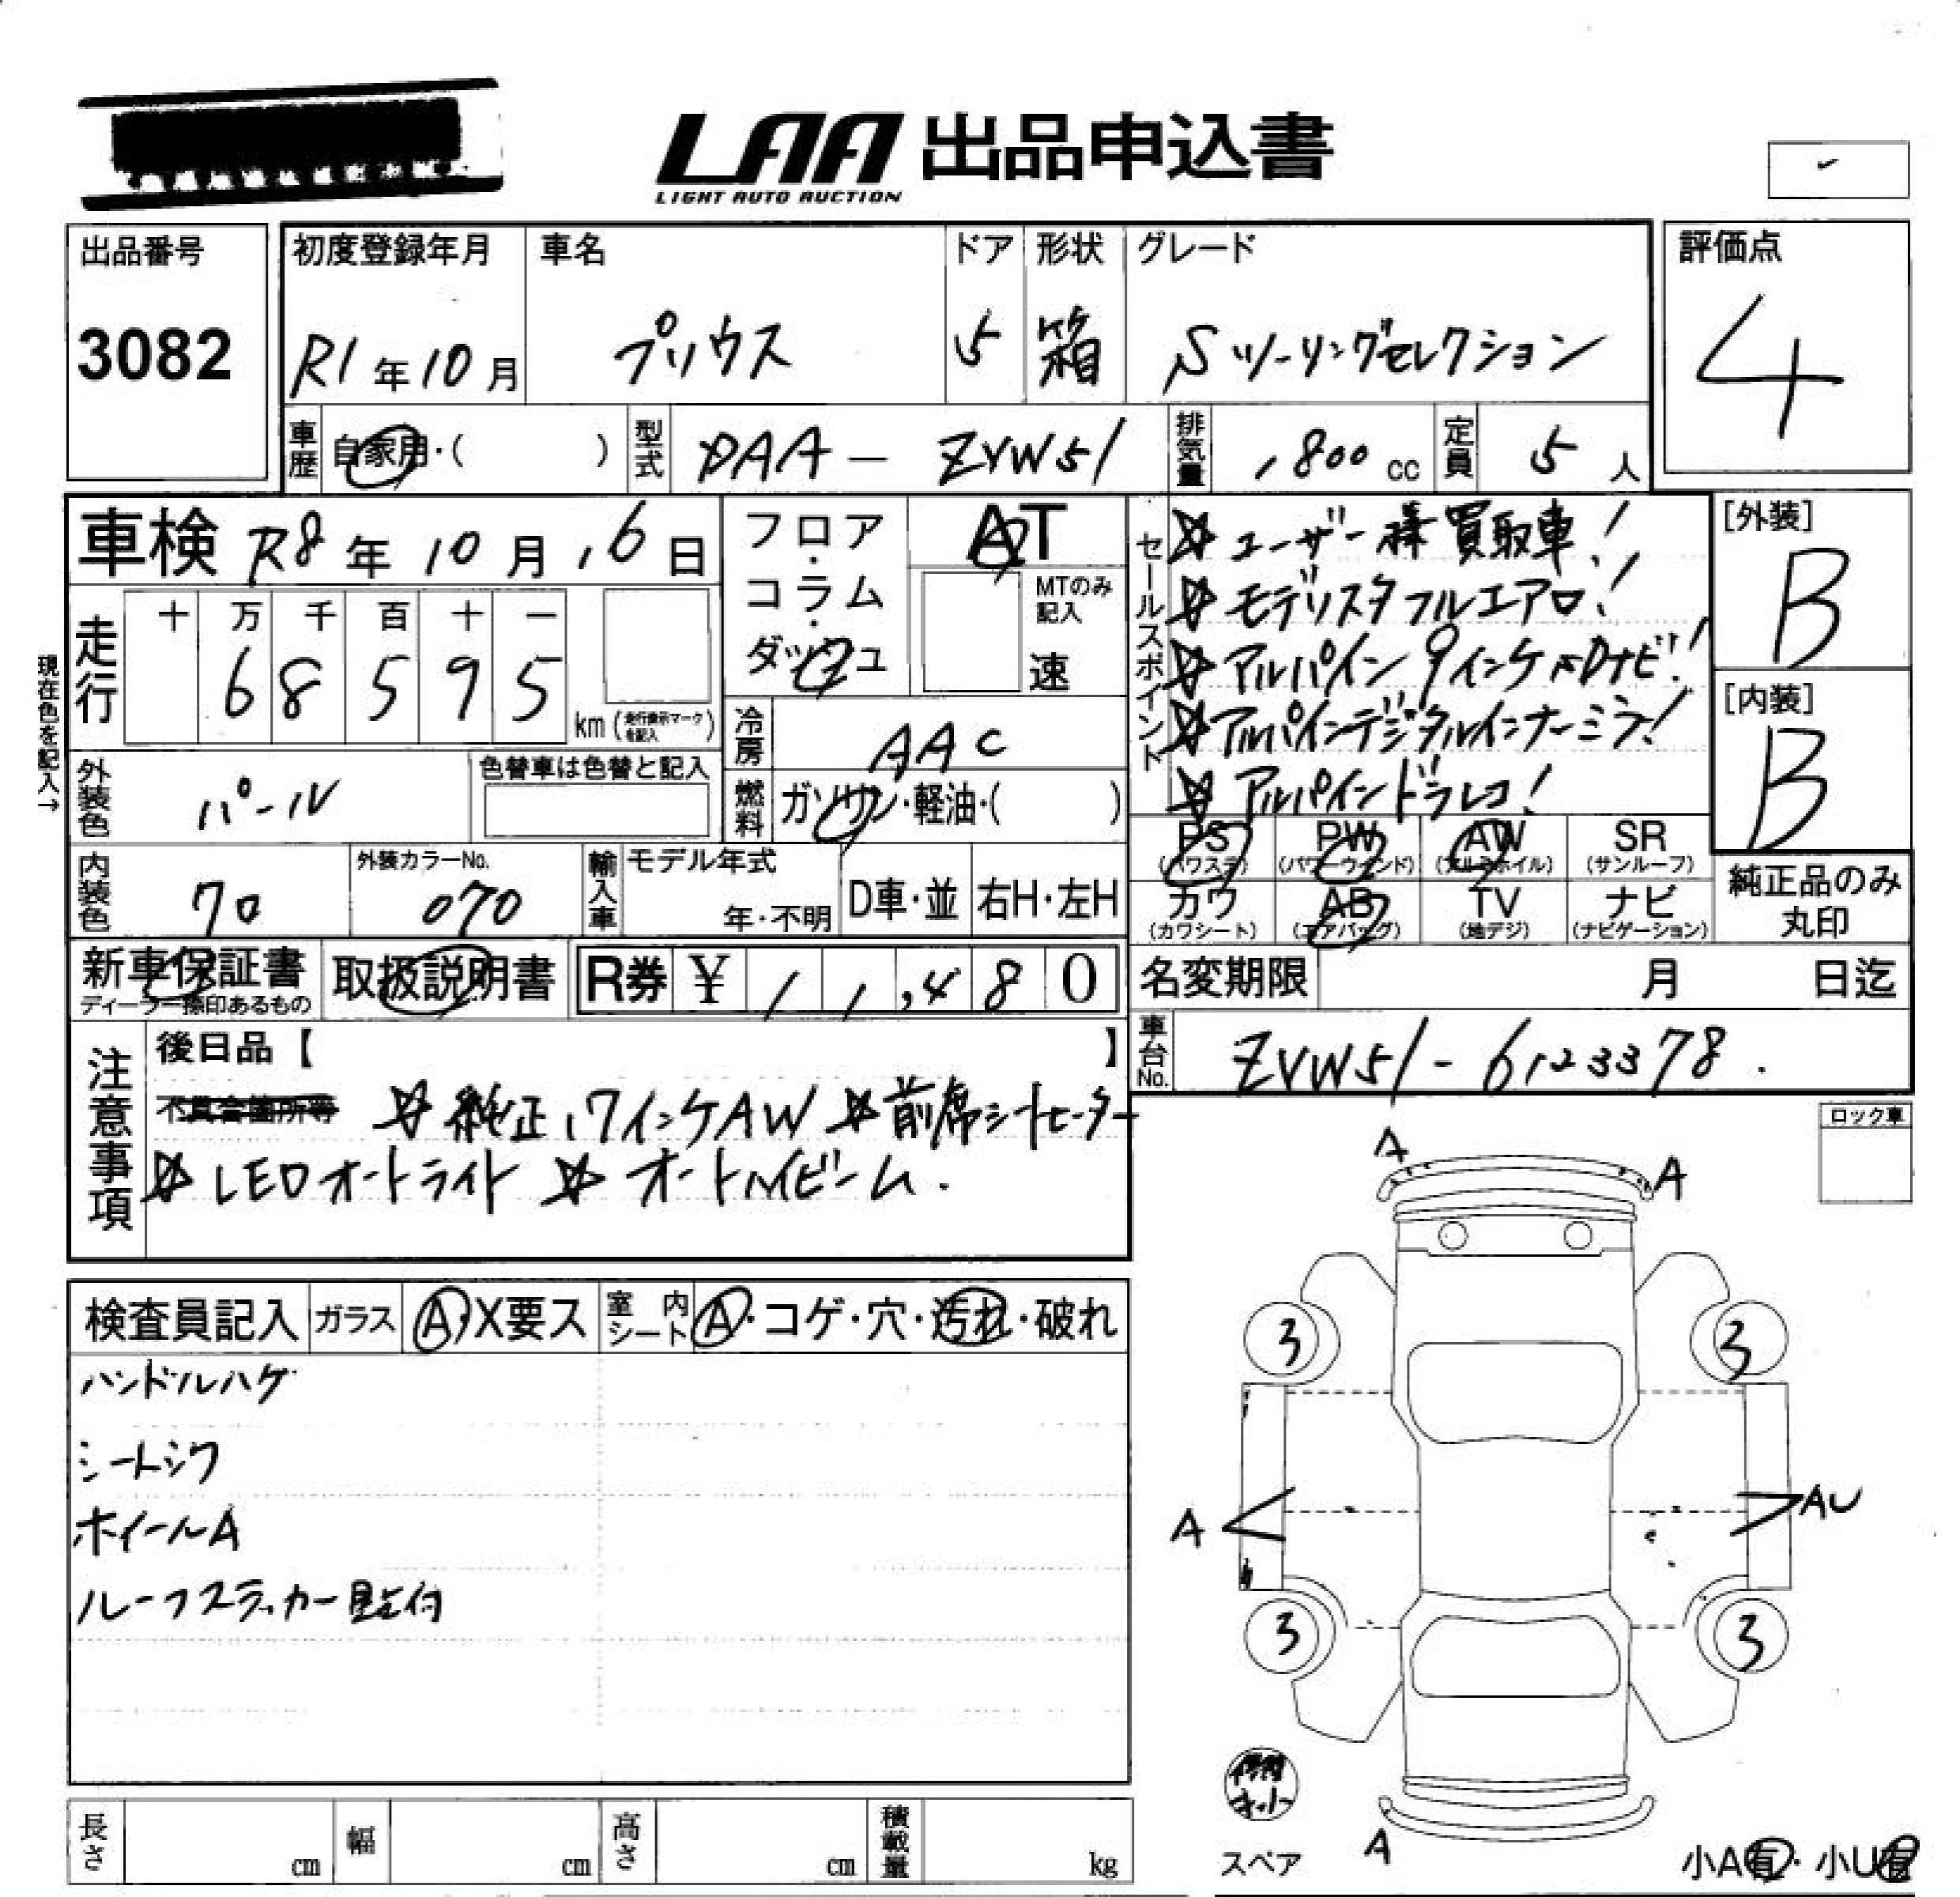 LAA 出品申込書
LIGHT AUTO AUCTION
出品番号
3082
初度登録年月
R1年10月
車名
プリウス
ドア
5
形状
箱
グレード
Sツーリングセレクション
評価点
4
車歴
自家用・( )
型式
DAA-ZVW51
排気量
1800cc
定員
5人
車検 R8年10月16日
走行
十 万 千 百 十 一
6 8 5 9 5
km (走行表示マークを記入)
現在色を記入→
フロア・コラム・ダッシュ
AT
MTのみ記入
速
冷房
AAC
燃料
ガソリン・軽油・( )
外装色
パール
色替車は色替と記入
内装色
70
外装カラーNo.
070
輸入車
モデル年式
年・不明
D車・並
右H・左H
セールスポイント
☆ユーザー様買取車!
☆モデリスタフルエアロ!
☆アルパイン9インチMDナビ!
☆アルパインデジタルインナーミラー!
☆アルパインドラレコ!
[外装]
B
[内装]
B
PS
(パワステ)
PW
(パワーウィンド)
AW
(アルミホイル)
SR
(サンルーフ)
カワ
(カワシート)
AB
(エアバッグ)
TV
(地デジ)
ナビ
(ナビゲーション)
純正品のみ
丸印
新車保証書
ディーラー捺印あるもの
取扱説明書
R券 ¥ 11,480
名変期限 月 日迄
車台No.
ZVW51-6123378.
注意事項
後日品【 】
不具合箇所等
☆純正17インチAW ☆前席シートヒーター
☆LEDオートライト ☆オートハイビーム.
ロック車
検査員記入
ガラス
A・X要ス
室内シート
A・コゲ・穴・汚れ・破れ
ハンドルハゲ
シートシワ
ホイールA
ルーフステッカー貼付
A
A
3
3
A
AU
3
3
A
修理キット
スペア
小A有・小U有
長さ cm
幅 cm
高さ cm
積載量 kg